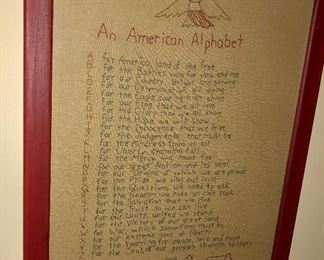 An American Alphabet
A for America, land of the free
B for the Battles won for you and me
C for our Country, bright and strong
D for our Determination all along
E for the Eagle soaring high above
F for our Flag that we all love
G for the Glory that we all know
H for the Hope we will show
I for the Innocence that we free
J for the Judgements that must be
K for the Kindness from us all
L for Liberty, standing tall
M for the Mercy we must feel
N for our great Nation and its seal
O for our Origins of which we are proud
P for the Pride we sing out loud
Q for the Questions we need to ask
R for the Reason we take on this task
S for the Salvation that we give
T for the Trust so we can live
U for our Unity, united we stand
V for the Victory of our great land
W for War, which sometimes must be
X for our extreme love of liberty
Y for the Yearning for peace, love and hope
Z for the Zeal of our people's strength to cope